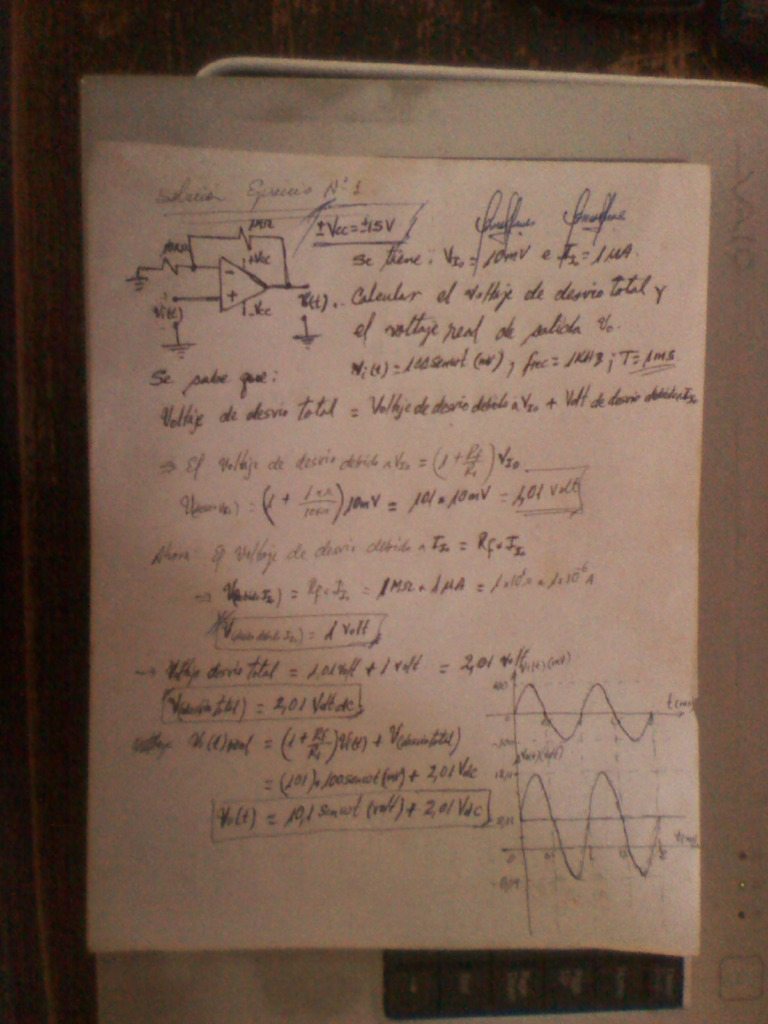 Solución Ejercicio Nº 1
1MΩ
±Vcc = ±15V
10KΩ
+Vcc
Se tiene: VIo = 10mV e IIo = 1μA.
-
+
-Vcc
Vi(t)
Calcular el voltaje de desvío total y
el voltaje real de salida Vo.
Vi(t) = 100senωt (mV); frec = 1KHz; T = 1ms
Se sabe que:
Voltaje de desvío total = Voltaje de desvío debido a VIo + Volt de desvío debido a IIo
⇒ El Voltaje de desvío debido a VIo = (1 + Rf/Ri) VIo
= (1 + 1MΩ/10KΩ) 10mV = 101 × 10mV = 1,01 volt
Ahora: El Voltaje de desvío debido a IIo = Rf × IIo
⇒ = Rf × IIo = 1MΩ × 1μA = × 1×10⁻⁶A
= 1 volt
→ Voltaje desvío total = 1,01 volt + 1 volt = 2,01 volt
V(desvío total) = 2,01 Volt dc
Voltaje Vo(t) real = (1 + Rf/Ri) Vi(t) + V(desvío total)
= (101) × 100senωt (mV) + 2,01 Vdc
Vo(t) = 10,1 senωt (volt) + 2,01 Vdc
Vi(t) (mV)
100
0
-100
0
VAIO